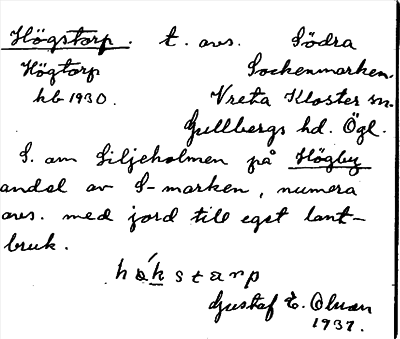 Högstorp. t. avs. Södra
Högtorp Sockenmarken.
hb 1930. Vreta Kloster sn.
Gullbergs hd. Ögl.
S. om Liljeholmen på Högby
andel av S-marken, numera
avs. med jord till eget lant-
bruk.
hökstarp
Gustaf E. Olson
1937.